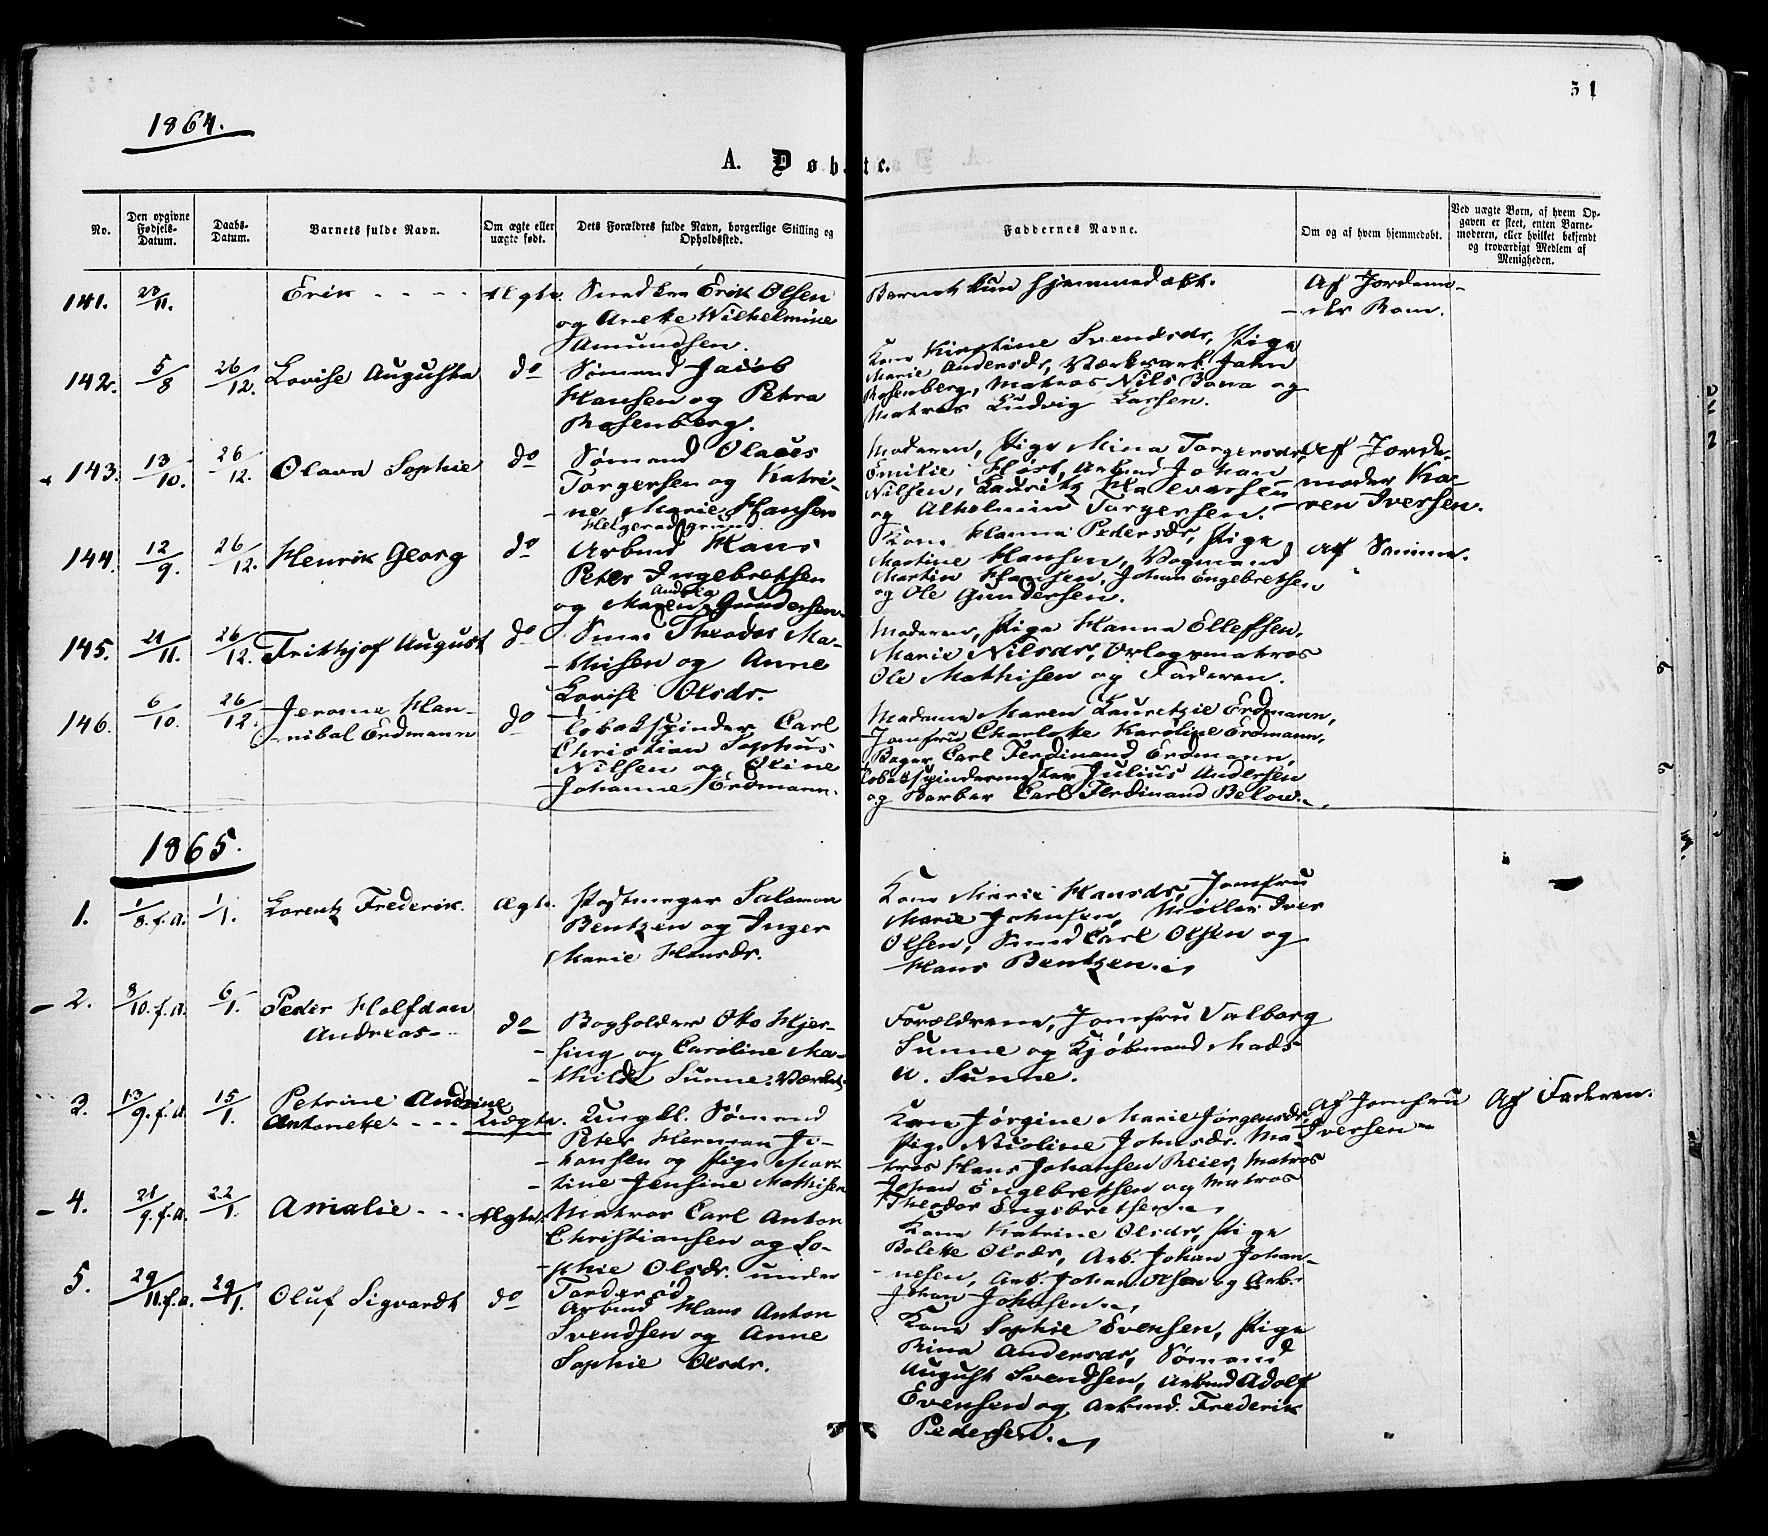 31
1864.
A. Døbte.
No.
Den opgivne Fødsels-Datum.
Daabs-Datum.
Barnets fulde Navn.
Om ægte eller uægte født.
Dets Forældres fulde Navn, borgerlige Stilling og Opholdssted.
Faddernes Navne.
Om og af hvem hjemmedøbt.
Ved uægte Born, af hvem Opgaven er skeet, enten Barnemoderen, eller hvilket bekjendt og troværdigt Medlem af Menigheden.
141.
Erik
Ægte.
Erik Olsen
og Anette Wilhelmine
Amundsen.
Barnet kun hjemmedøbt.
Af Jordem-
142.
5/8
26/12.
Lovise Augusta
do
Sømand Jacob
Hansen og Petra
Rosenberg.
Kone Kirstine Svendsdr, Pige
Marie Andersdr,
Rosenberg, Matros Nils og
Matros Ludvig Larsen.
143.
13/10.
26/12.
Olava Sophie
do
Sømand Olaves
Torgersen og Katri-
ne Marie Hansen
Moderen, Pige Mina Torgersdr,
Emilie Johan
Nilsen, Lauritz Halvorsen
og Torgersen.
Af Jorde-
moder Ka-
ren Iversen.
144.
12/9.
26/12.
Henrik Georg
do
Arbmd Hans
Peter Ingebretsen
og Maren Andrea Gundersen
Kone Hanna Pedersdr, Pige
Martine Hansen, Vognmand
Martin Hansen, Johan Engebretsen
og Ole Gundersen.
Af Samme.
145.
21/11.
26/12.
Frithjof August
do
Theodor Ma-
thisen og Anne
Lovise Olsdr.
Moderen, Pige Hanna Ellefsen,
Marie Nilsdr, Orlogsmatros
Ole Mathisen og Faderen.
146.
6/10.
26/12.
Jerome Han-
nibal Erdmann
do
Tobakspinder Carl
Christian Sophus
Nilsen og Oline
Johanne Erdmann.
Madame Maren Lauretzie Erdmann,
Jomfru Charlotte Karoline Erdmann,
Bager Carl Ferdinand Erdmann,
Tobakspindermester Julius Andersen
og Barber Carl Ferdinand Below.
1865.
1.
1/8. f.A.
1/1.
Lorentz Frederik.
Ægte.
Salamon
Bentzen og Inger
Marie Hansdr.
Kone Marie Hansdr, Jomfru
Marie Johnsen, Møller Iver
Olsen, Smed Carl Olsen og
Hans Bentzen.
2.
8/10. f.A.
6/1.
Peder Halfdan
Andreas
do
Bogholder Otto Hjer-
sing og Caroline Ma-
thilde Sunne.
Forældrene, Jomfru Valborg
Sunne og Kjøbmand Mads
Sunne.
3.
13/9. f.A.
15/1.
Petrine Andrine
Antonette
Uægte.
Ungkl. Sømand
Peter Herman Jo-
hansen og Pige Mar-
tine Jensine Mathisen
Kone Jørgine Marie Jørgensdr,
Pige Nicoline Johnsdr. Ma-
tros Hans Johansen Reier, Matros
Johan Engebretsen og Matros
Theodor Engebretsen.
Af Jomfru
Iversen
Af Faderen.
4.
21/9. f.A.
22/1.
Amalie
Ægte.
Matros Carl Anton
Christiansen og So-
phie Olsdr. under
Torderød
Kone Katrine Olsdr, Pige
Bolette Olsdr, Arb. Johan Johan-
nesen, Arb. Johan Olsen og Arb.
Johan Johnsen.
5.
29/11. f.A.
29/1.
Oluf Sigvardt
do
Arbmd Hans Anton
Svendsen og Anne
Sophie Olsdr.
Kone Sophie Evensen, Pige
Rina Andersdr, Sømand
August Svendsen, Arbmd Adolf
Evensen og Arbmd. Frederik
Pedersen.